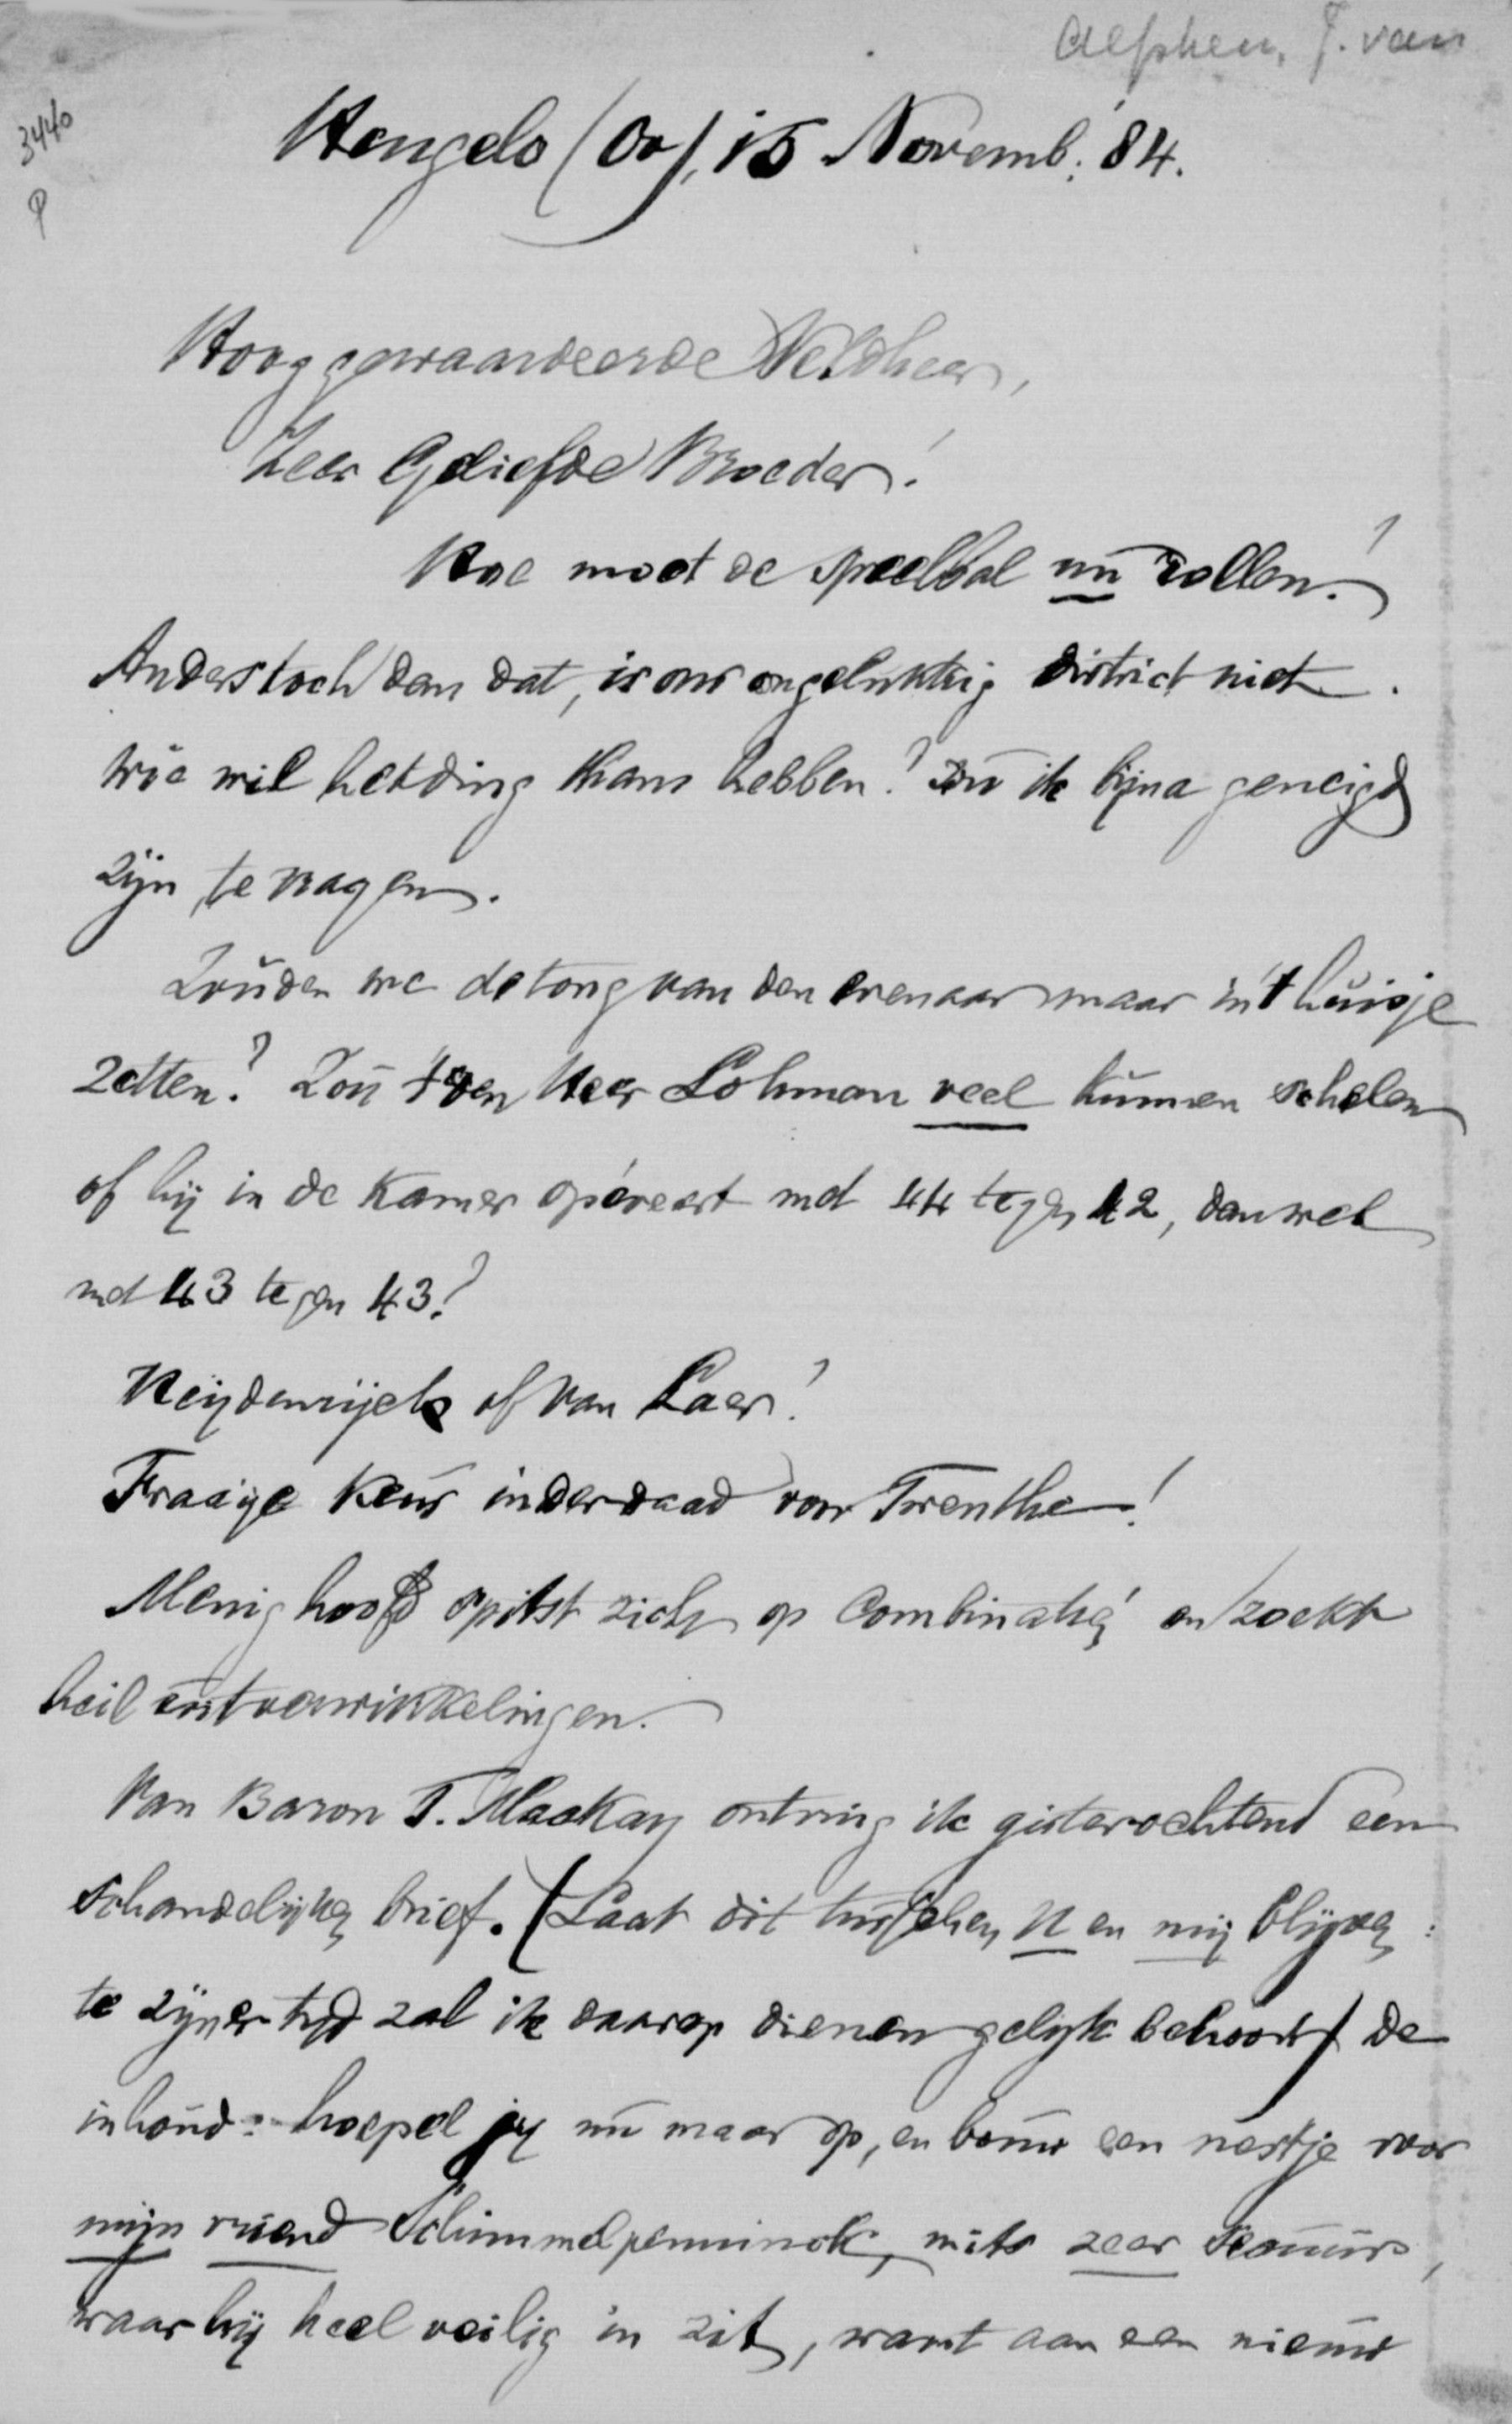 Alphen, J. van
3440
P
Hengelo (Ov), 15 Novemb. '84.
Hooggewaardeerde Veldheer,
Zeer Geliefde Broeder!
Hoe moet de speelbal nu rollen?
Anders toch dan dat, is ons ongelukkig district niet.
Wie wil het ding thans hebben? zou ik bijna geneigd
zijn, te vragen.
Zouden we de tong van den evenaar maar in 't huisje
zetten? Zou 't den Heer Lohman veel kunnen schelen
of hij in de Kamer opereert met 44 tegen 42, dan wel
met 43 tegen 43?
Heydenrijck of van Laer?
Fraaije keur inderdaad voor Twenthe!
Menig hoofd spitst zich op combinatie's en zoekt
heil uit verwikkelingen.
Van Baron T. Mackay ontving ik gisterochtend een
schandelijken brief. (Laat dit tusschen U en mij blijven:
te zijner tijd zal ik daarop dienen gelijk behoort) De
inhoud: hoepel jij nu maar op, en bouw een nestje voor
mijn vriend Schimmelpenninck, mits zeer secuur,
waar hij heel veilig in zit, want aan een nieuw